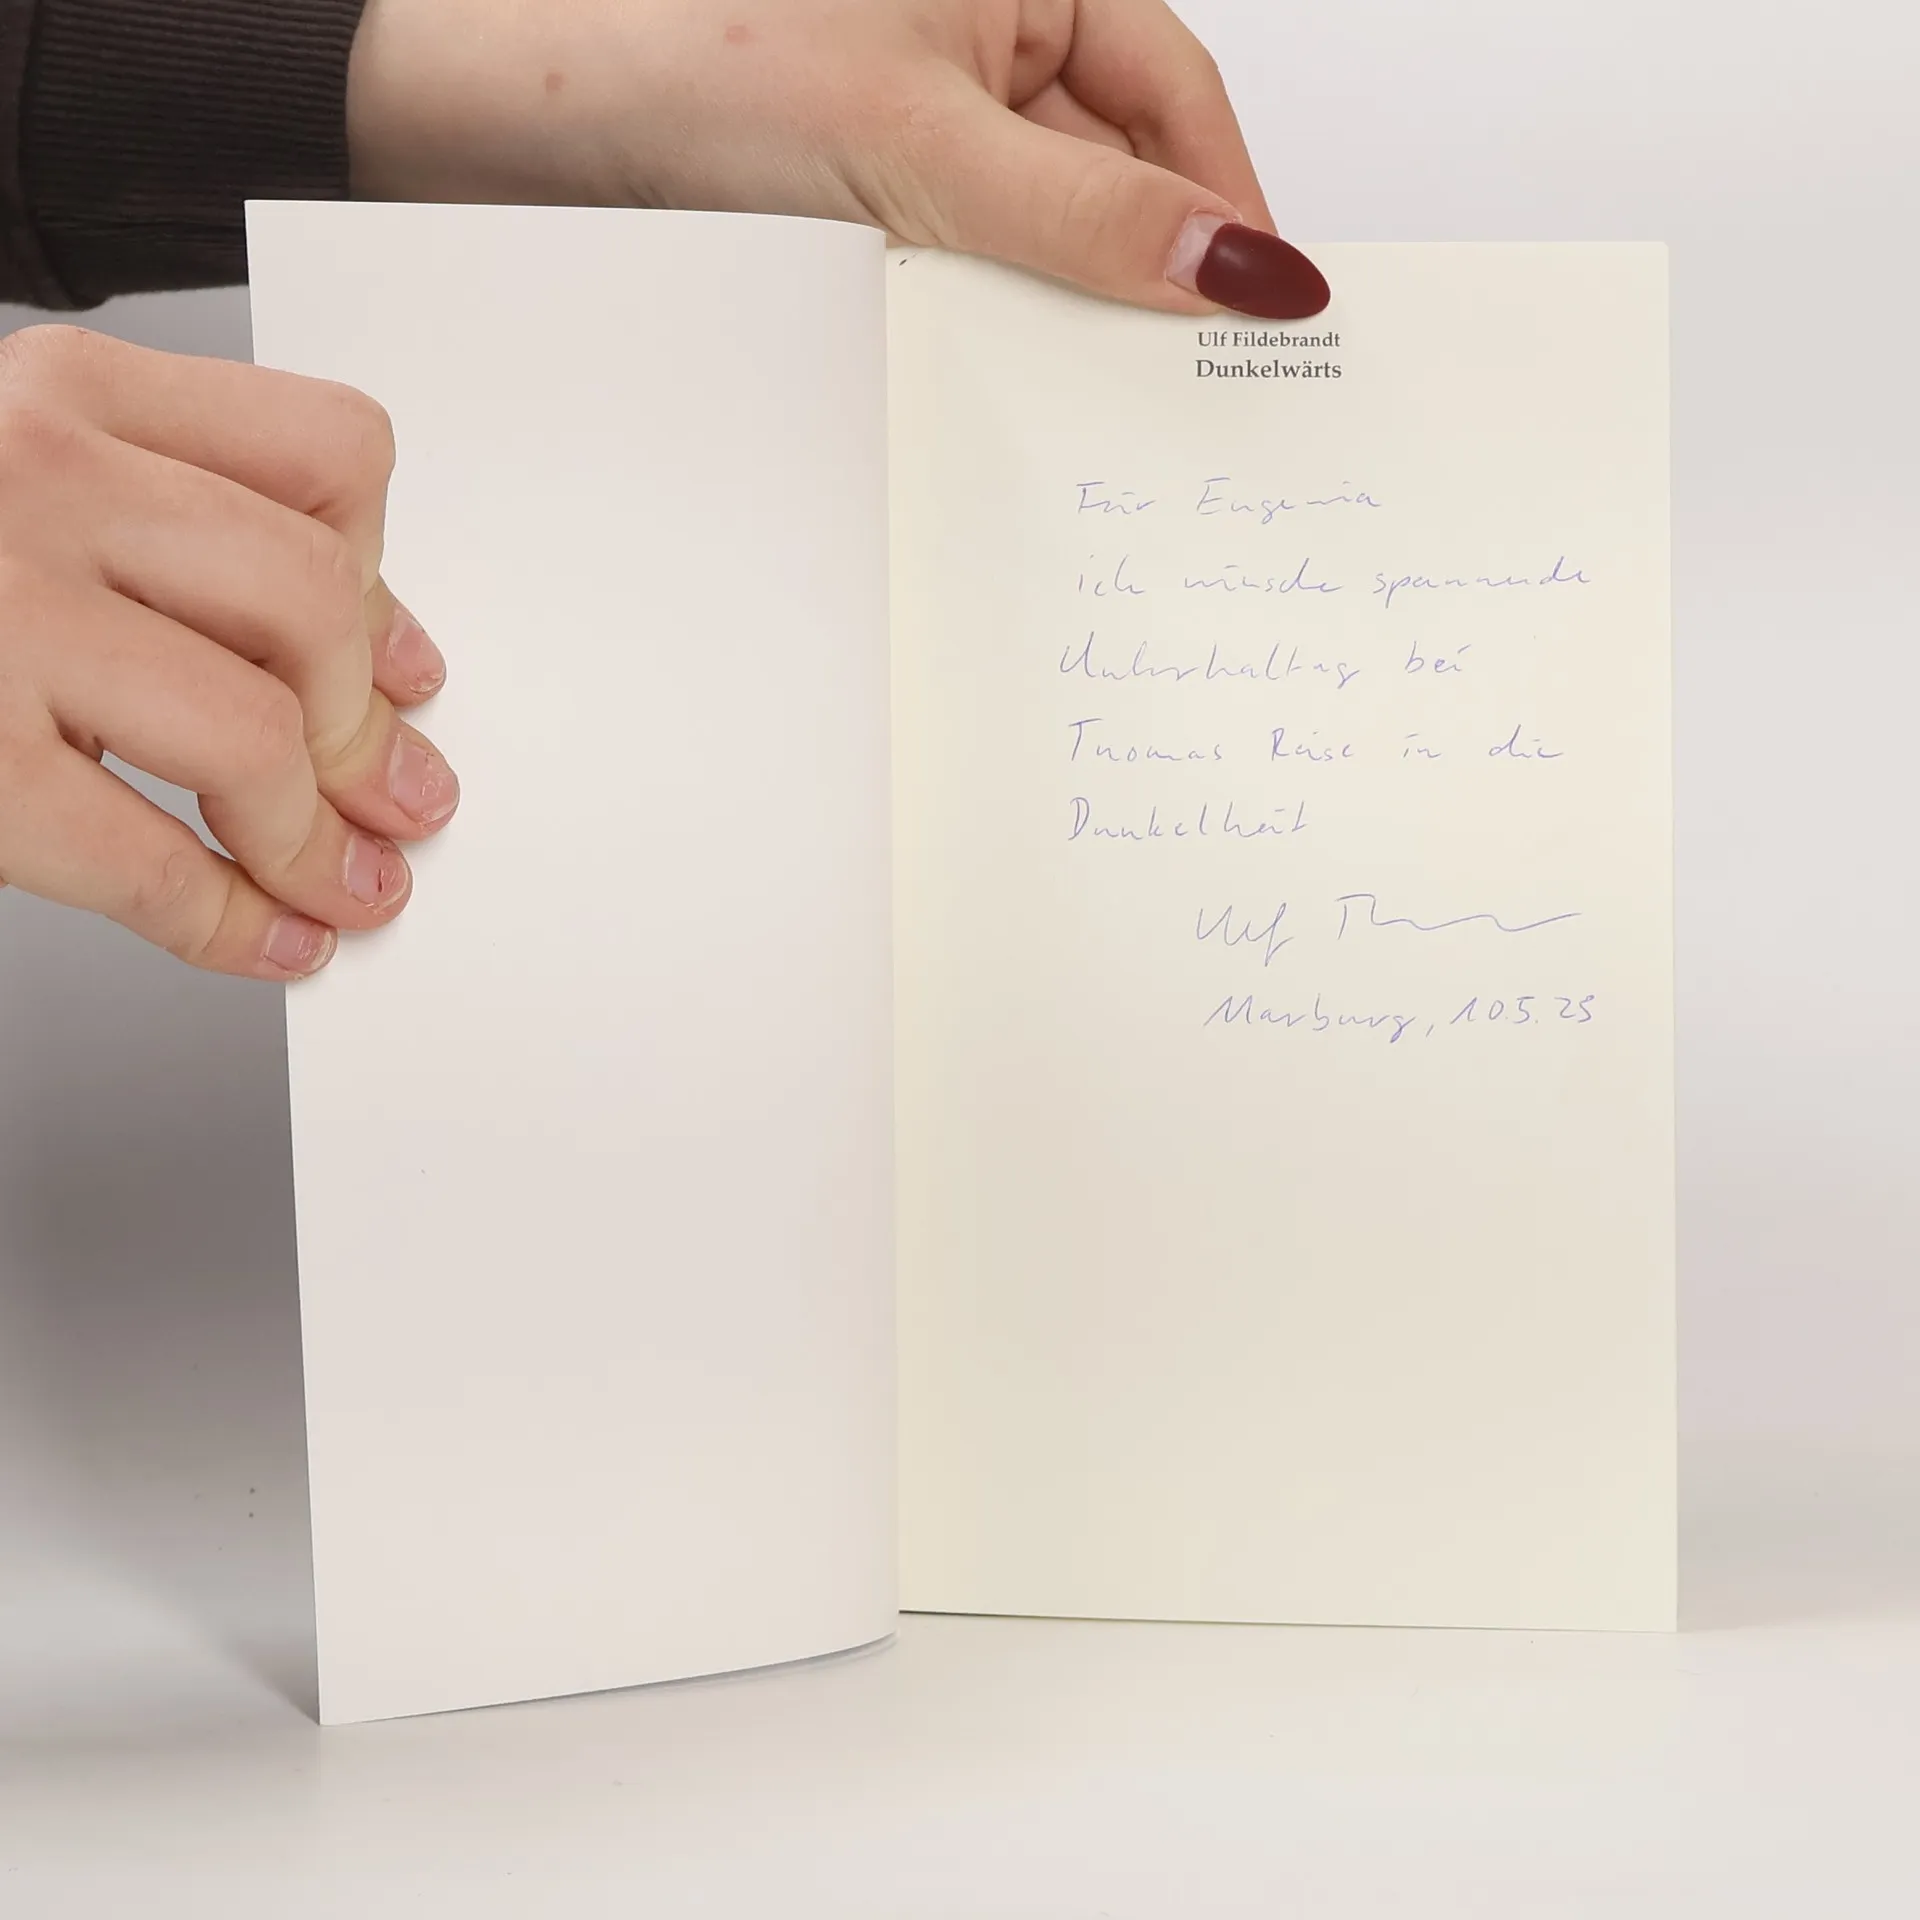 Ulf Fildebrandt
Dunkelwärts
Für Eugenia
ich wünsche spannende
Unterhaltung bei
Thomas Reise in die
Dunkelheit
Ulf
Marburg, 10.5.23